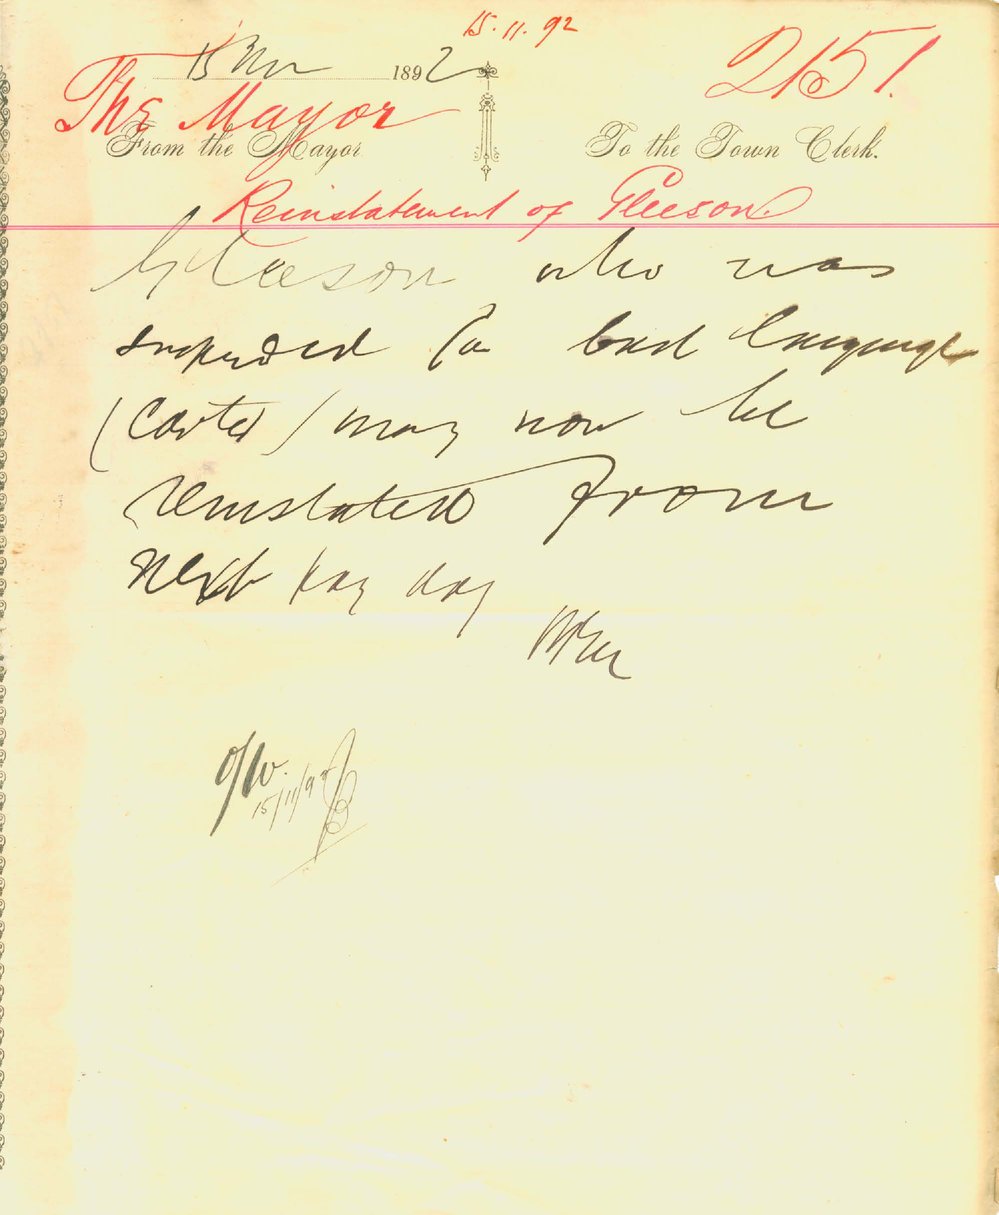 15.11.92
15 Nov 1892
2151.
The Mayor
From the Mayor
To the Town Clerk.
Reinstatement of Gleeson.
Gleeson who was
suspended for bad language
(Carter) may now be
reinstated from
next pay day
O/W.
15/11/92